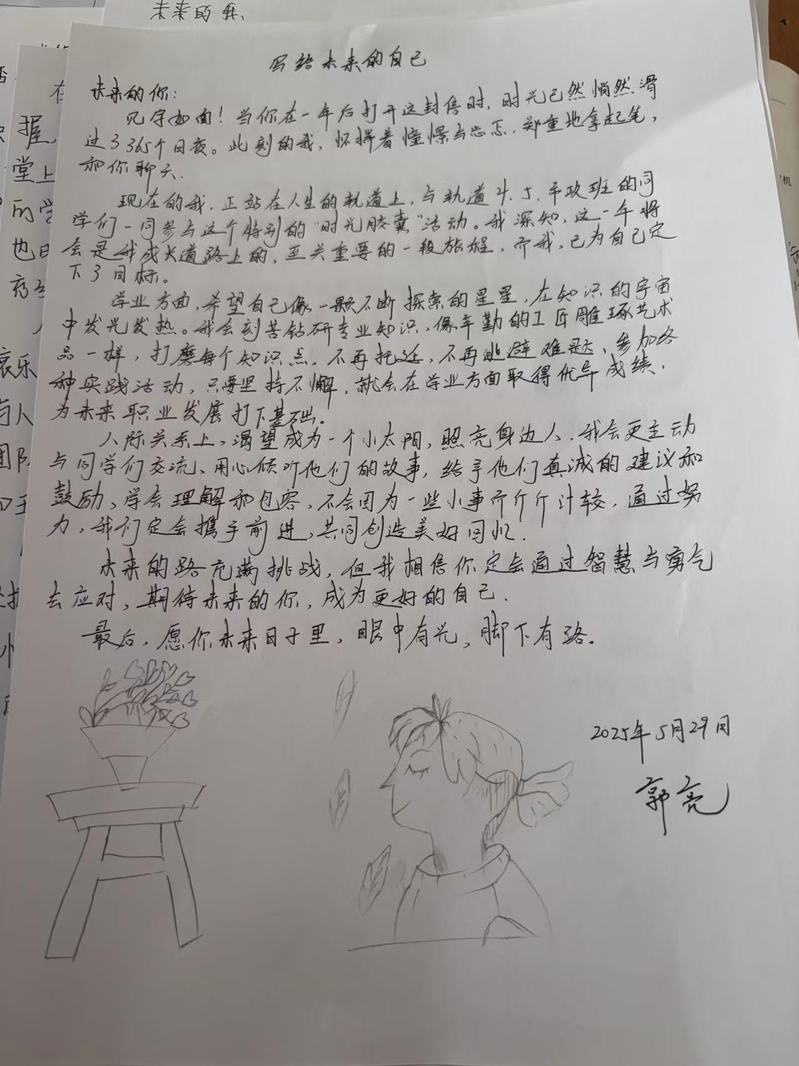 未来的我、
写给未来的自己
未来的你：
见字如面！当你在一年后打开这封信时，时光已然悄然滑
过了365个日夜。此刻的我，怀揣着憧憬与忐忑，郑重地拿起笔，
和你聊天．
现在的我，正站在人生的轨道上，与轨道4.5.平政班的同
学们一同参与这个特别的“时光胶囊”活动。我深知，这一年将
会是我成长道路上的，至关重要的一段旅程，而我，已为自己定
下了目标。
学业方面，希望自己像一颗不断探索的星星，在知识的宇宙
中发光发热。我会刻苦钻研专业知识，像辛勤的工匠雕琢艺术
品一样，打磨每个知识点．不再拖延，不再逃避难题、参加各
种实践活动，只要坚持不懈，就会在学业方面取得优异成绩，
为未来职业发展打下基础。
人际关系上，渴望成为一个小太阳，照亮身边人．我会更主动
与同学们交流、用心倾听他们的故事，给予他们真诚的建议和
鼓励、学会理解和包容，不会因为一些小事而斤斤计较，通过努
力，我们定会携手前进，共同创造美好回忆．
未来的路充满挑战，但我相信你定会通过智慧与勇气
去应对，期待未来的你，成为更好的自己．
最后，愿你未来日子里，眼中有光，脚下有路。
2025年5月29日
郭亮